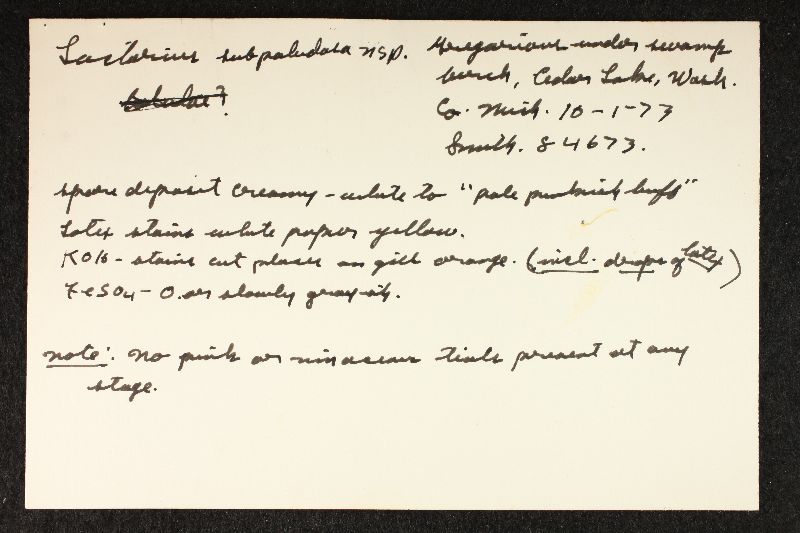 Lactarius subpaludosa nsp.
Gregarious under swamp
birch, Cedar Lake, Wash.
Co. Mich. 10-1-73
Smith. 84673.
spore deposit creamy-white to "pale pinkish buff"
Latex stains white paper yellow.
KOH - stains cut places on gill orange. (incl. drops of latex)
FeSO4 - O. or slowly gray-ish.
note: no pink or vinaceous tints present at any
stage.